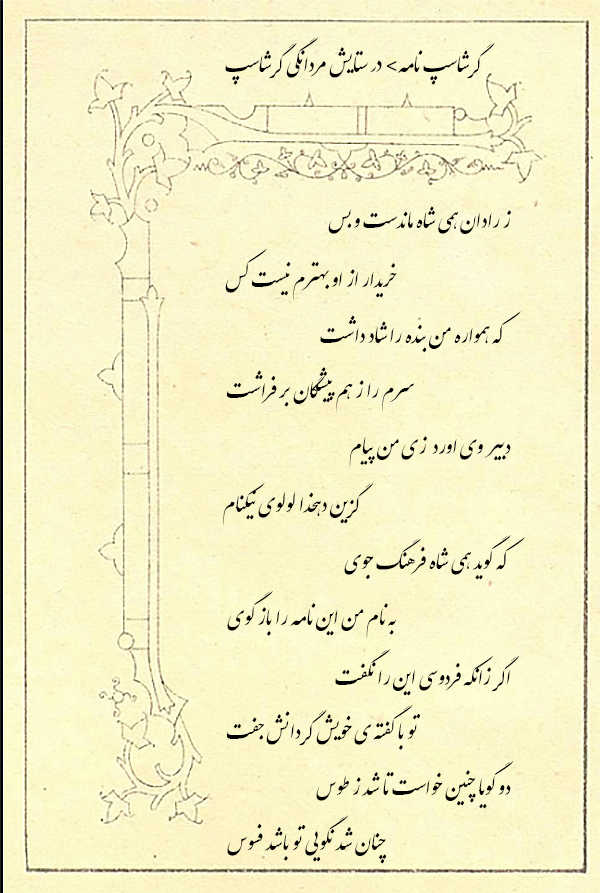 گرشاسپ نامه> در ستایش مردانگی گرشاسپ
ز رادان همی شاه ماندست و بس
خریدار از او بهترم نیست کس
که همواره من بنده را شاد داشت
سرم را ز هم پیشگان بر فراشت
دبیر وی اورد زی من پیام
گزین دهخدا لولوی نیکنام
که گوید همی شاه فرهنگ جوی
به نام من این نامه را باز گوی
اگر زانکه فردوسی این را نگفت
تو با گفته ی خویش گردانش جفت
دو گویا چنین خواست تا شد ز طوس
چنان شد نکویی تو باشد فسوس